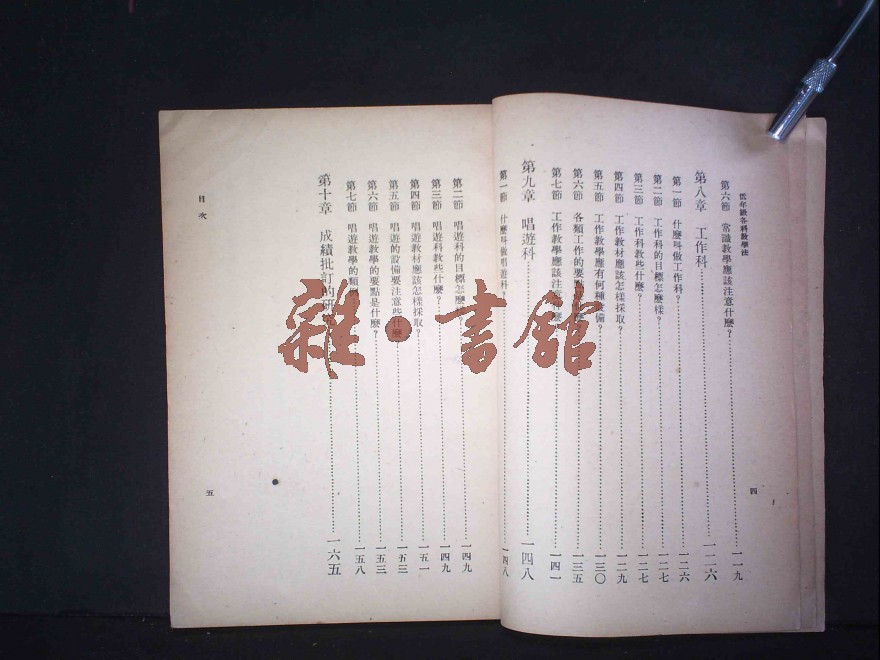 低年級各科教學法
第六節 常識教學應該注意什麼？ 一一九
第八章 工作科 一二六
第一節 什麼叫做工作科？ 一二六
第二節 工作科的目標怎麼樣？ 一二七
第三節 工作科教些什麼？ 一二七
第四節 工作教材應該怎樣採取？ 一二九
第五節 工作教學應有何種設備？ 一三〇
第六節 各類工作的要點 一三五
第七節 工作教學應該注意 一四一
第九章 唱遊科 一四八
第一節 什麼叫做唱遊科 一四八
四
第二節 唱遊科的目標怎麼 一四九
第三節 唱遊科教些什麼？ 一四九
第四節 唱遊教材應該怎樣採取？ 一五一
第五節 唱遊的設備要注意些什麼 一五三
第六節 唱遊教學的要點是什麼？ 一五三
第七節 唱遊教學的類 一五八
第十章 成績批訂的研 一六五
目次
五
雜·書館